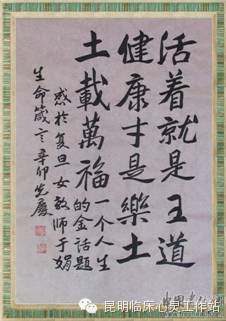 活着就是王道
健康才是樂土
土載萬福
一个人生
的金话題
感於复旦女教师于娟
生命箴言辛卯先慶
昆明临床心灵工作站